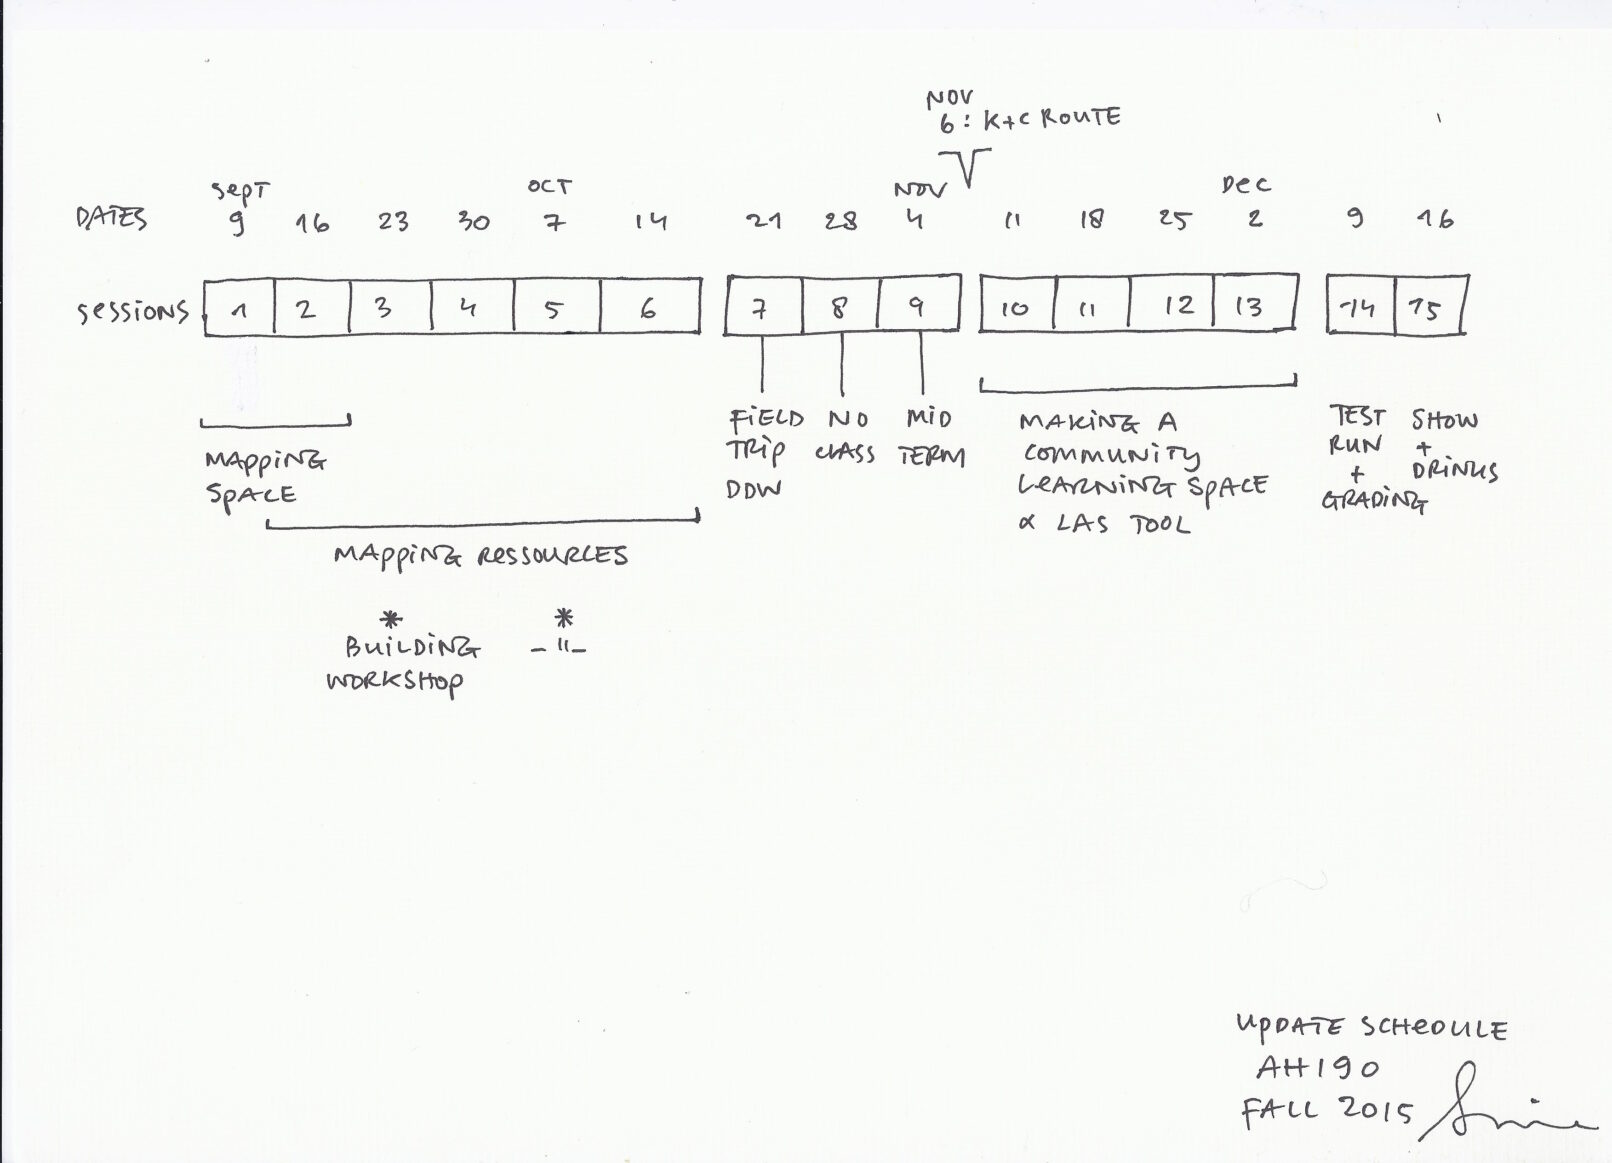 NOV
6: K+C ROUTE
SEPT OCT NOV DEC
DATES 9 16 23 30 7 14 21 28 4 11 18 25 2 9 16
SESSIONS 1 2 3 4 5 6 7 8 9 10 11 12 13 14 15
MAPPING
SPACE
MAPPING RESSOURCES
*
BUILDING
WORKSHOP
*
-"-
FIELD
TRIP
DDW
NO
CLASS
MID
TERM
MAKING A
COMMUNITY
LEARNING SPACE
∝ LAS TOOL
TEST
RUN
+
GRADING
SHOW
+
DRINKS
UPDATE SCHEDULE
AH190
FALL 2015